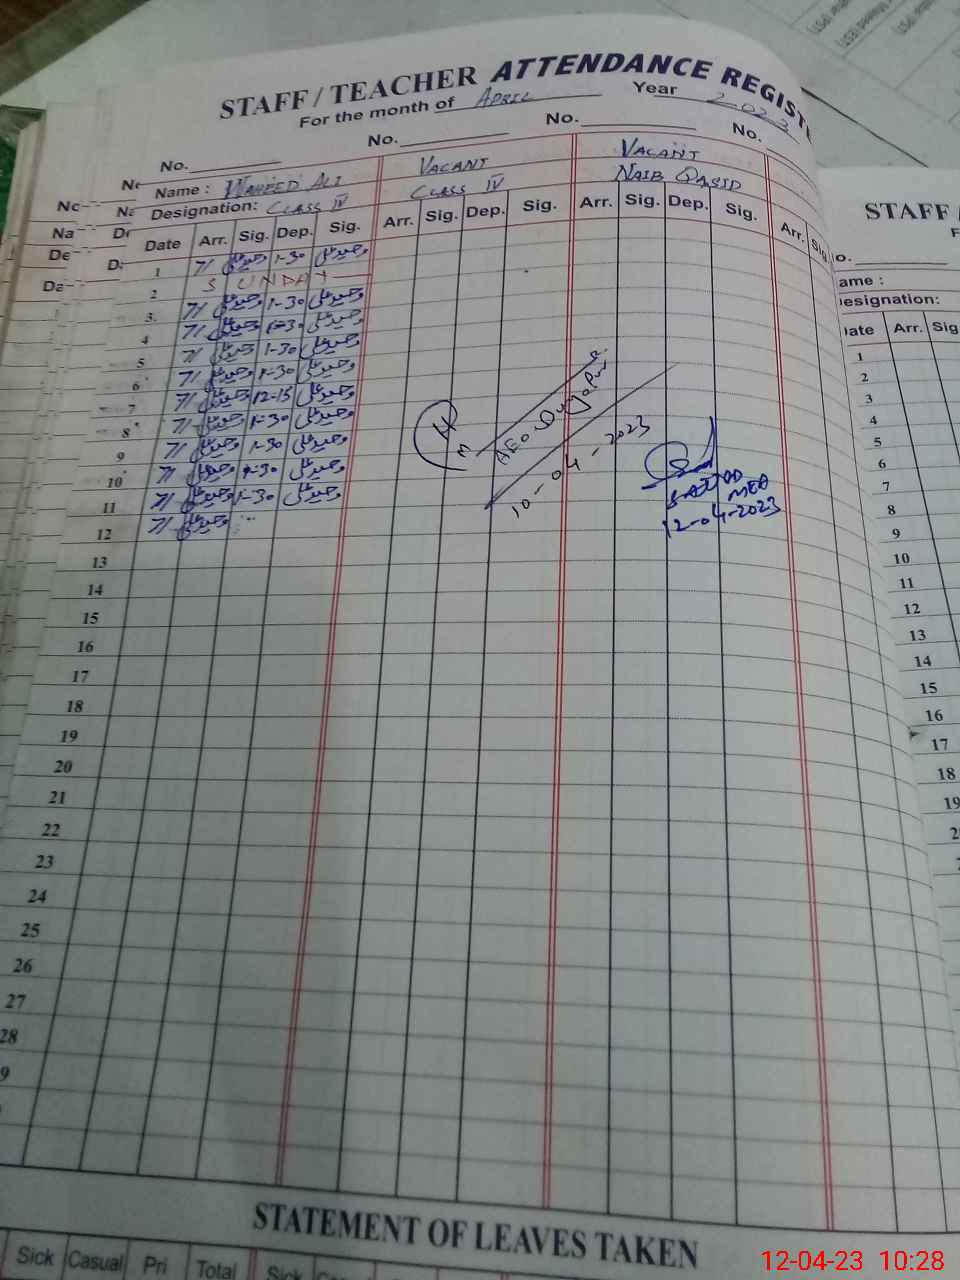 STAFF / TEACHER ATTENDANCE REGIST
For the month of APRIL Year 2023
No. No. No. No.
Name : WAHEED ALI VACANT VACANT
Designation: CLASS IV CLASS IV NAIB QASID
Date Arr. Sig. Dep. Sig. Arr. Sig. Dep. Sig. Arr. Sig. Dep. Sig. Arr. Sig.
1 7/ وحید علی 1-30 وحید علی
2 SUNDAY
3 7/ وحید علی 1-30 وحید علی
4 7/ وحید علی 1-30 وحید علی
5 7/ وحید علی 1-30 وحید علی
6 7/ وحید علی 1-30 وحید علی
7 7/ وحید علی 12-15 وحید علی
8 7/ وحید علی 1-30 وحید علی
9 7/ وحید علی 1-30 وحید علی
10 7/ وحید علی 1-30 وحید علی
11 7/ وحید علی 1-30 وحید علی
12 7/ وحید علی
AEO
10-04-2023
SAJJAD
MEA
12-04-2023
13
14
15
16
17
18
19
20
21
22
23
24
25
26
27
28
9
STATEMENT OF LEAVES TAKEN
Sick Casual Pri Total Sick
STAFF
o.
ame :
esignation:
ate Arr. Sig
1
2
3
4
5
6
7
8
9
10
11
12
13
14
15
16
17
18
19
12-04-23 10:28